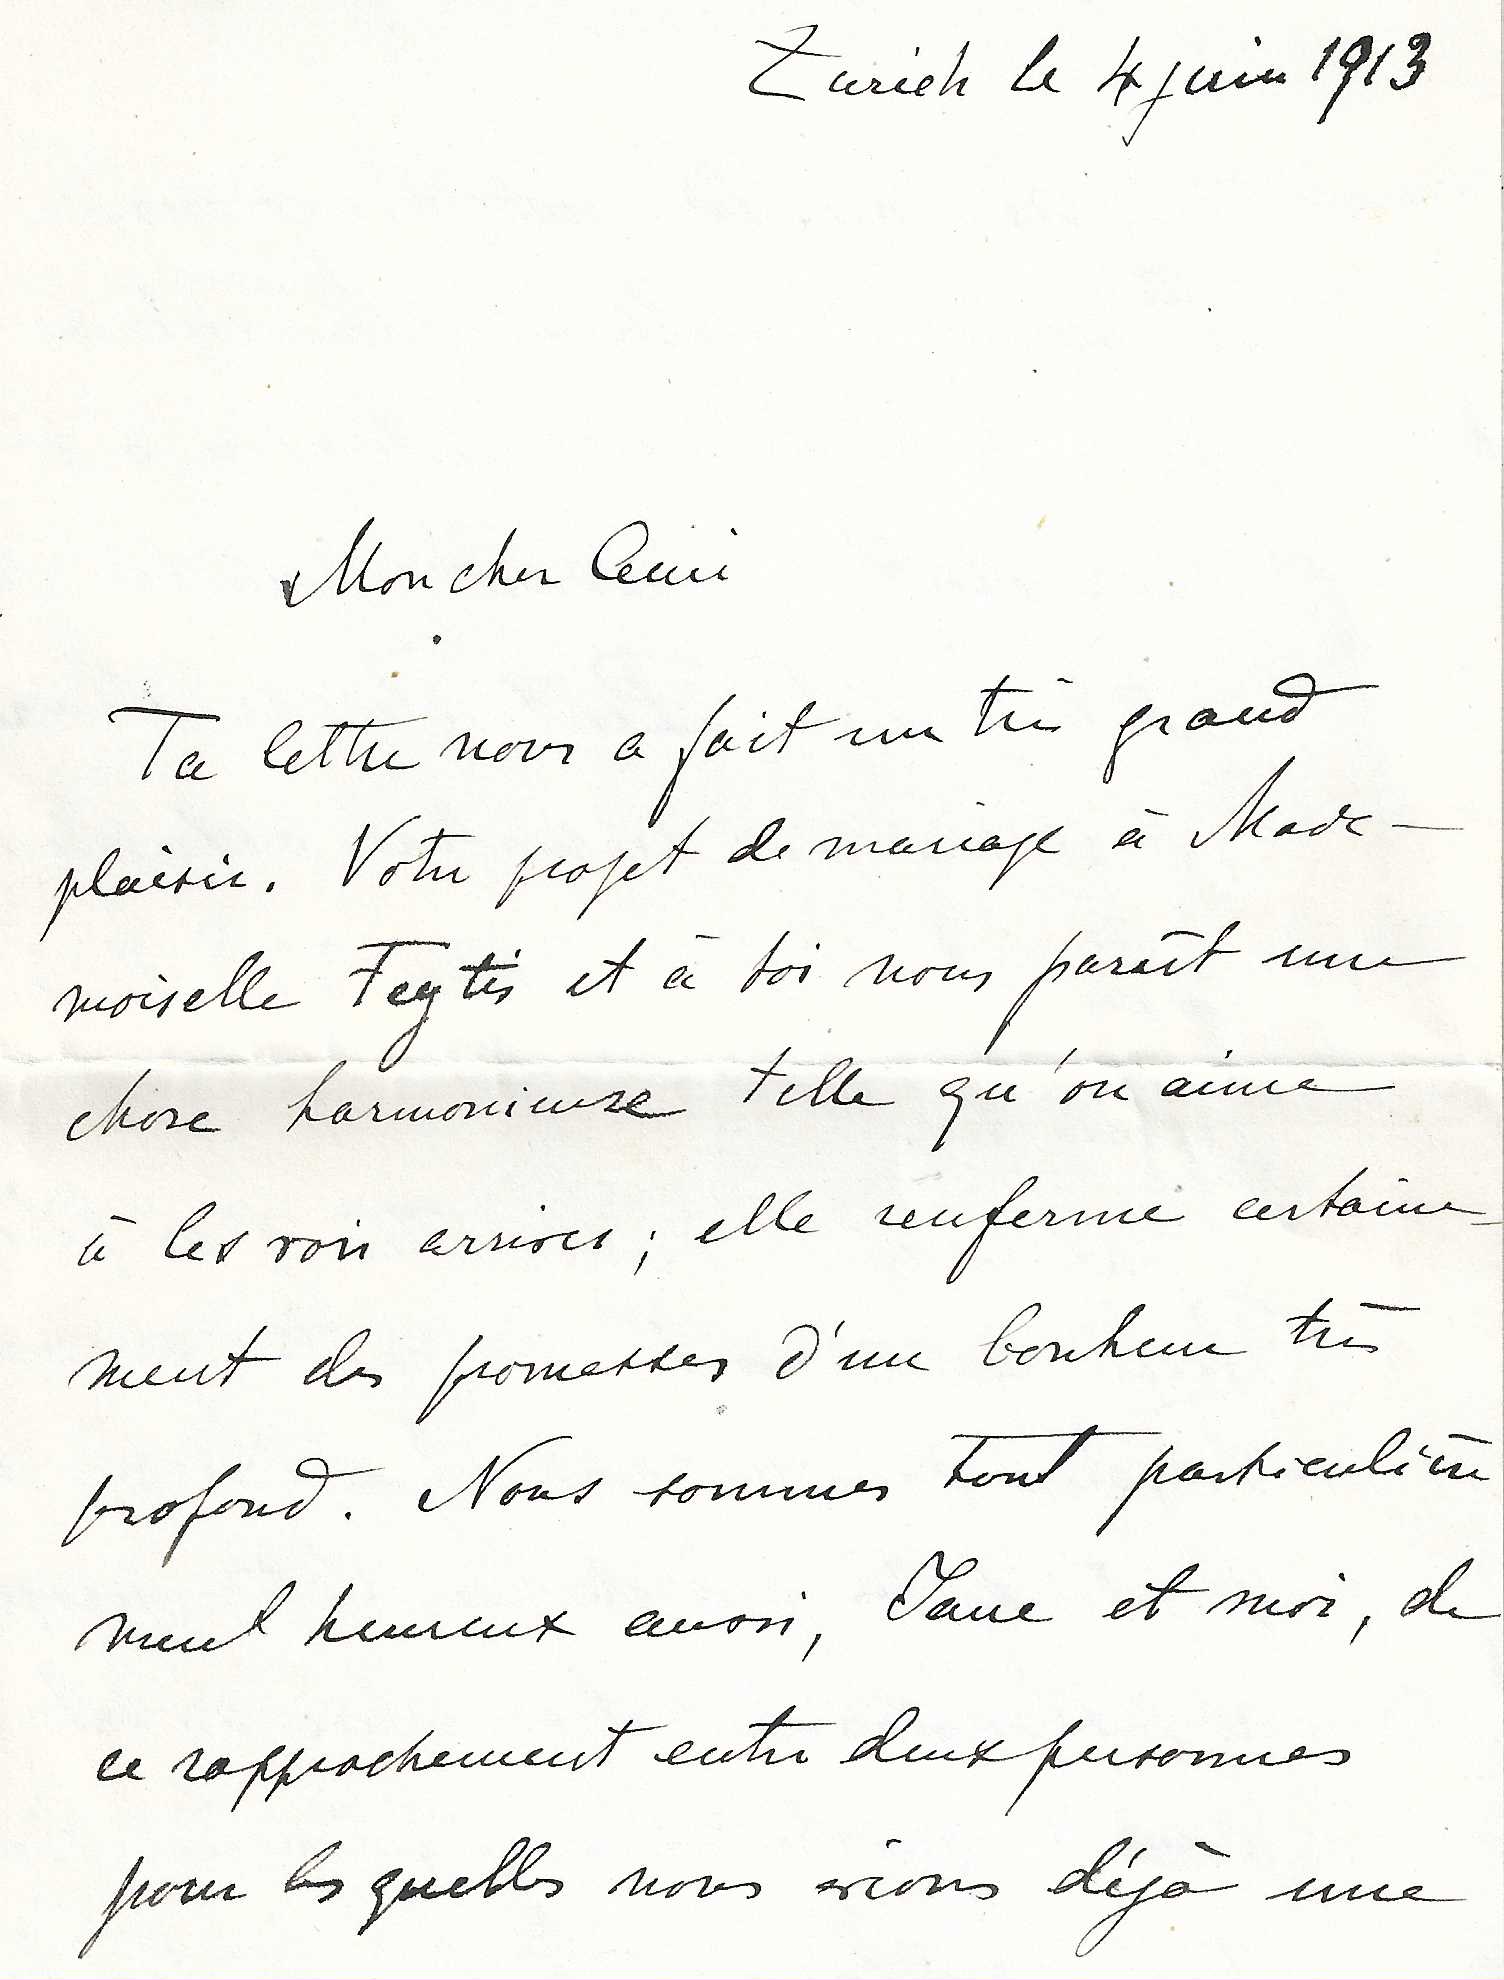 Zurich le 4 juin 1913
Mon cher Ami
Ta lettre nous a fait un très grand
plaisir. Votre projet de mariage à Made-
moiselle Feytis et à toi nous paraît une
chose harmonieuse telle qu'on aime
à les voir arriver ; elle renferme certaine-
ment des promesses d'un bonheur très
profond. Nous sommes tout particulière
ment heureux aussi, Jane et moi, de
ce rapprochement entre deux personnes
pour les quelles nous avions déjà une